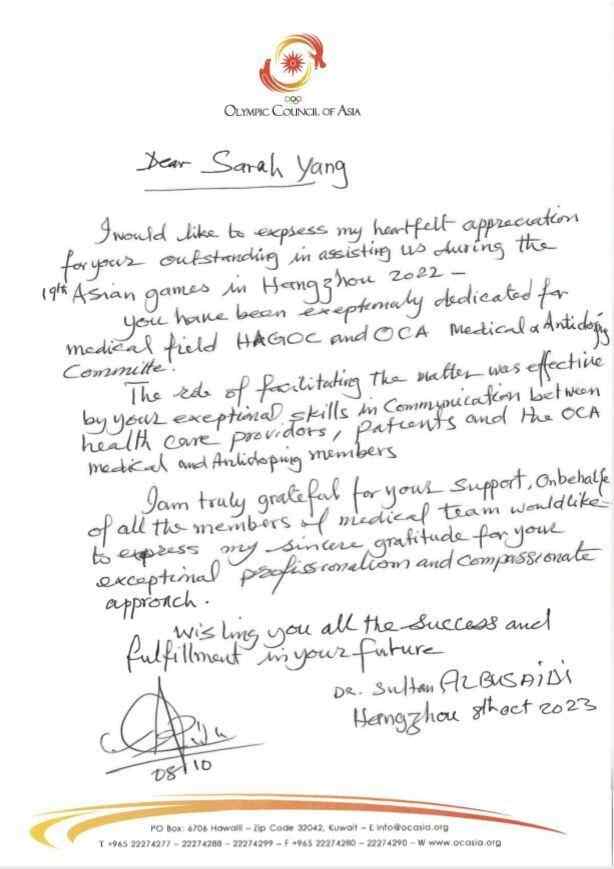 OLYMPIC COUNCIL OF ASIA
Dear Sarah Yang
I would like to expsess my heartfelt appreciation
for your outstanding in assisting us during the
19th Asian games in Hangzhou 2022 –
You have been exeptionaly dedicated for
medical field HAGOC and OCA Medical & Antidoping
Committe.
The role of facilitating the matter was effective
by your exeptional skills in Communication between
health care providors, patients and the OCA
medical and Antidoping members
I am truly grateful for your support, Onbehalfe
of all the members of medical team would like
to express my sincere gratitude for your
exceptional professionalism and compassionate
approch.
Wishing you all the success and
fulfillment in your future
Dr. Sultan ALBUSAIDI
Hangzhou 8th oct 2023
08/10
PO Box: 6706 Hawalli – Zip Code 32042, Kuwait – E info@ocasia.org
T +965 22274277 – 22274288 – 22274299 – F +965 22274280 – 22274290 – W www.ocasia.org